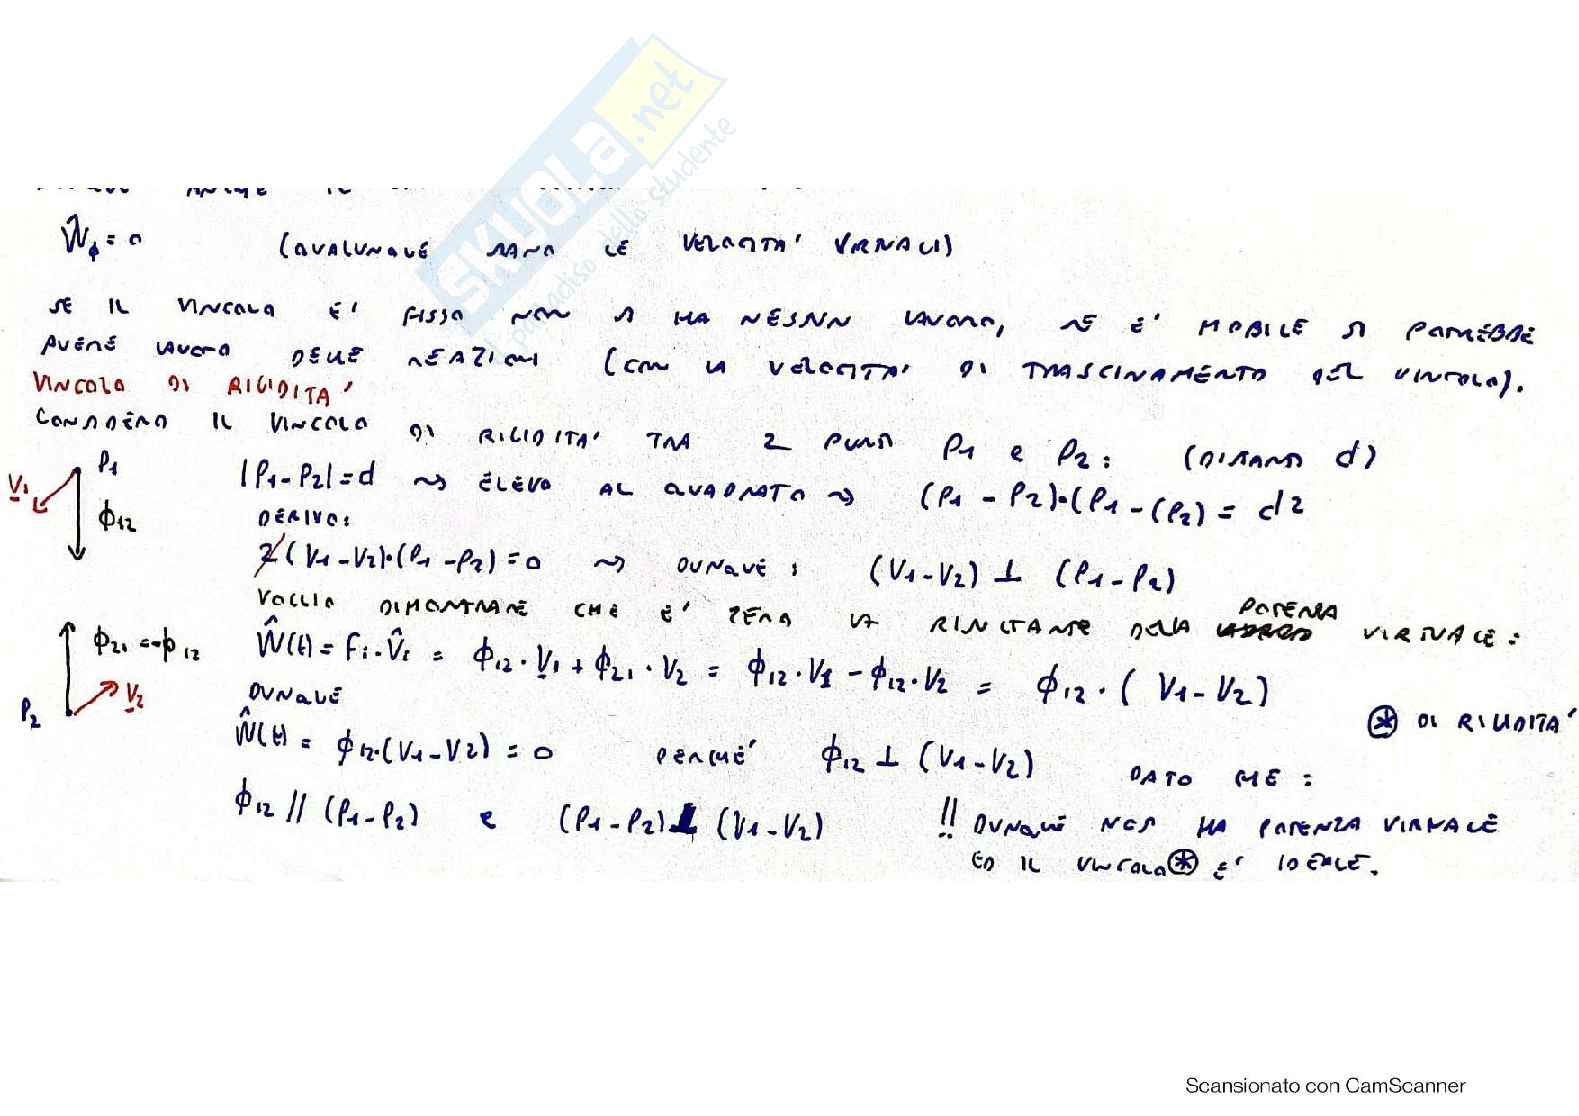 SKUOLA.net
paradiso dello studente
Ŵϕ = 0 (QUALUNQUE SIANO LE VELOCITA' VIRTUALI)
SE IL VINCOLO E' FISSO NON SI HA NESSUN LAVORO, SE E' MOBILE SI POTREBBE
AVERE LAVORO DELLE REAZIONI (CON LA VELOCITA' DI TRASCINAMENTO DEL VINCOLO).
VINCOLO DI RIGIDITA'
CONSIDERO IL VINCOLO DI RIGIDITA' TRA 2 PUNTI P1 e P2: (DISTANTI d)
P1
V1
ϕ12
|P1-P2|=d ⇝ ELEVO AL QUADRATO ⇝ (P1 - P2)·(P1-(P2) = d2
DERIVO:
2(V1-V2)·(P1-P2)=0 ⇝ DUNQUE: (V1-V2) ⊥ (P1-P2)
VOGLIO DIMOSTRARE CHE E' ZERO LA RISULTANTE DELLA POTENZA VIRTUALE:
ϕ21 = -ϕ12
V2
P2
Ŵ(t) = Fi·V̂i = ϕ12·V1 + ϕ21·V2 = ϕ12·V1 - ϕ12·V2 = ϕ12·(V1-V2)
DUNQUE
Ŵ(t) = ϕ12·(V1-V2) = 0 PERCHE' ϕ12 ⊥ (V1-V2) DATO CHE:
⊛ DI RIGIDITA'
ϕ12 // (P1-P2) e (P1-P2) ⊥ (V1-V2)
!! DUNQUE NON HA POTENZA VIRTUALE
ED IL VINCOLO ⊛ E' IDEALE.
Scansionato con CamScanner